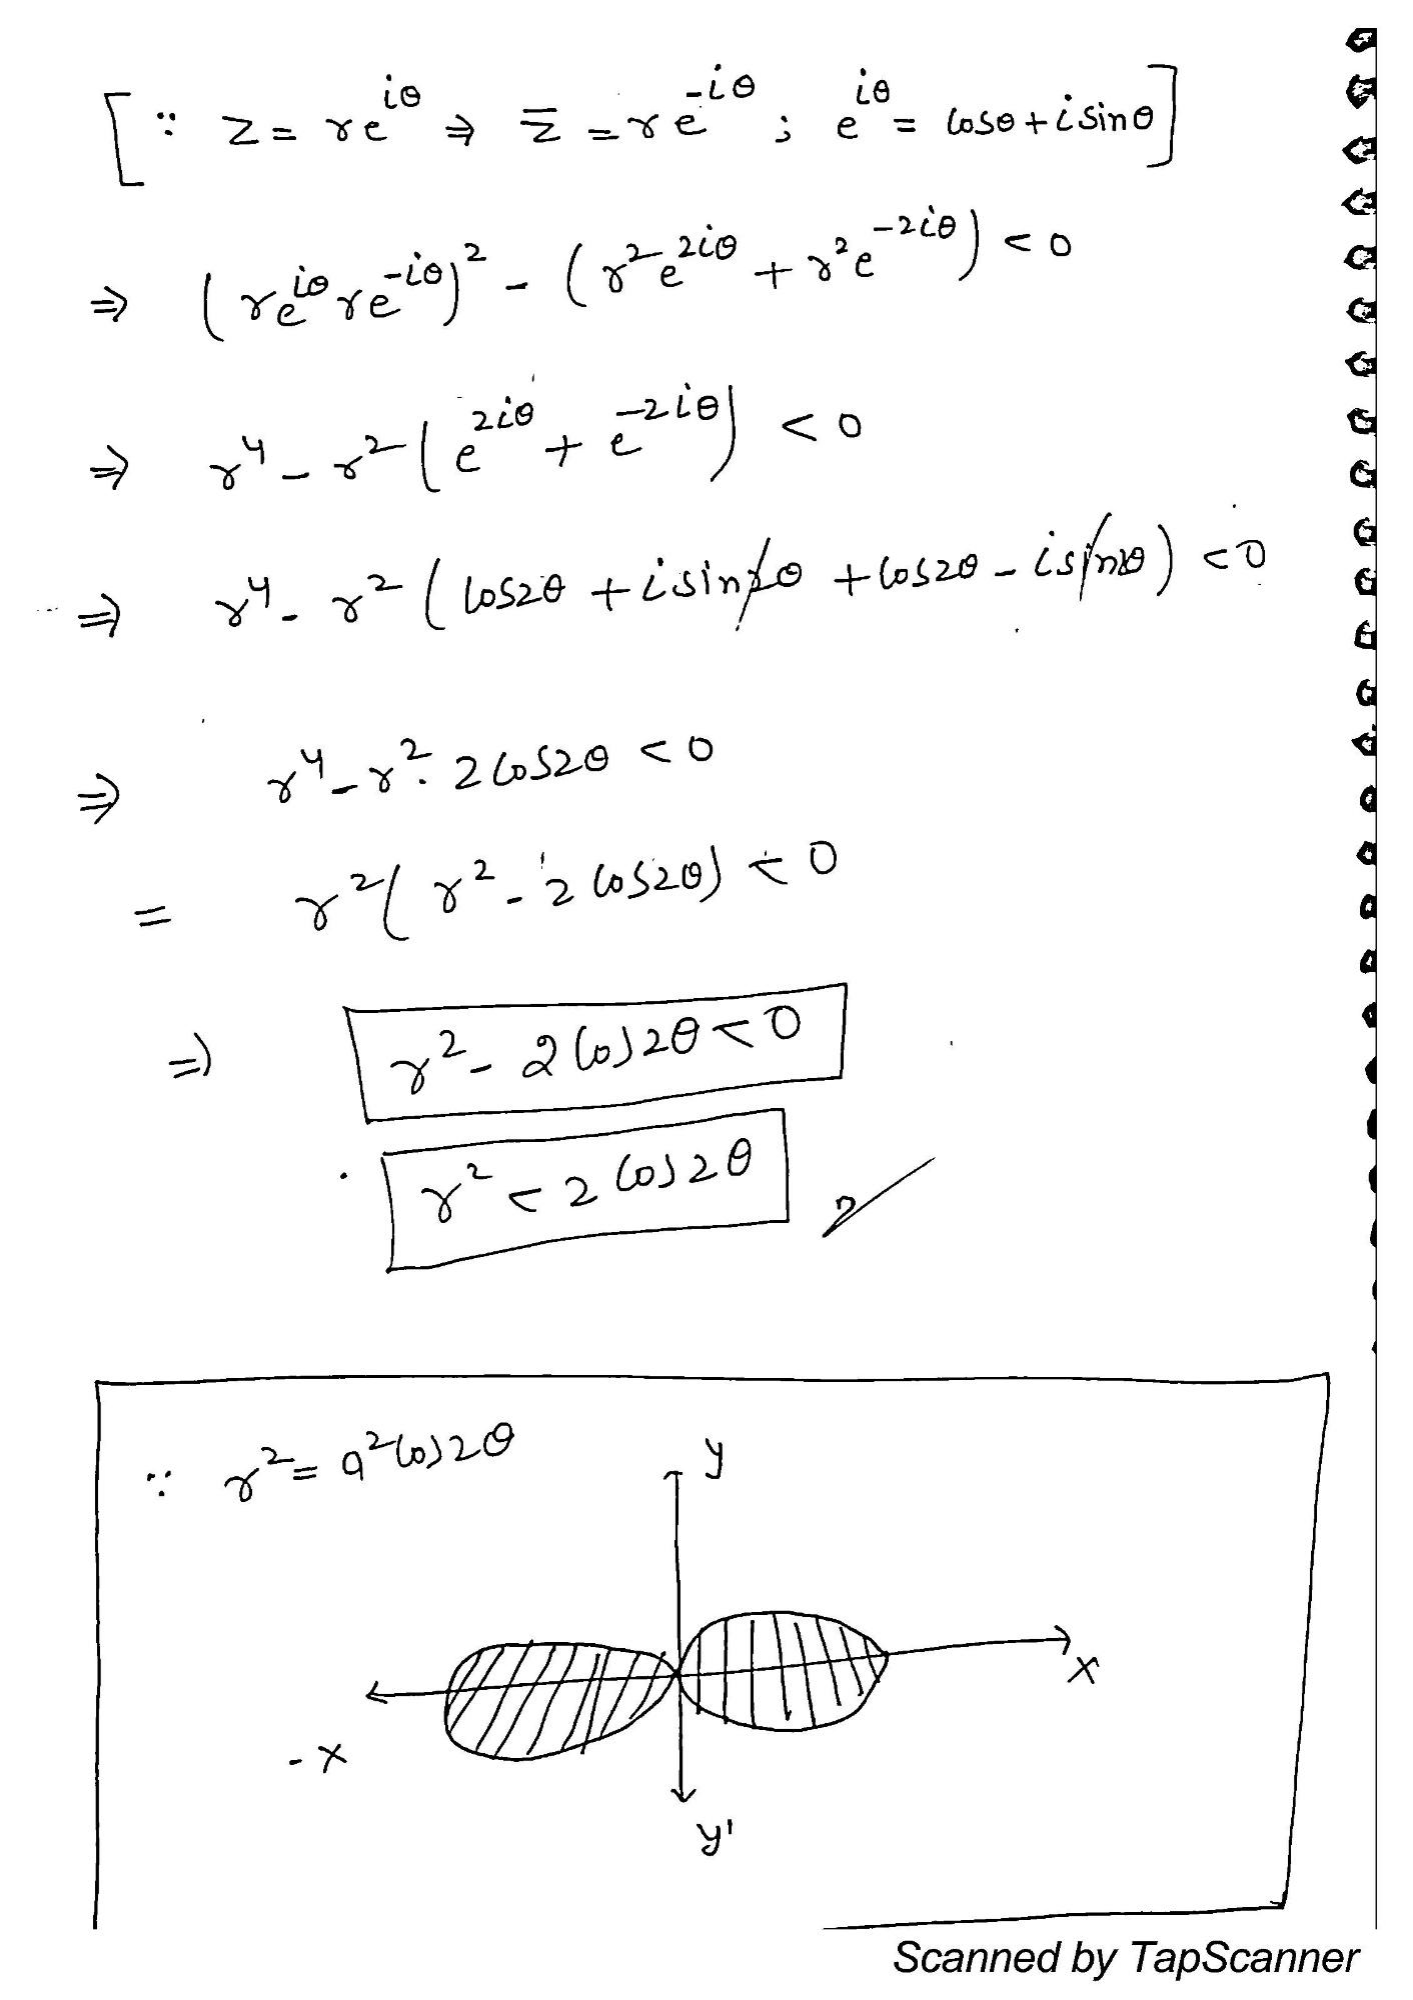 [∵ z = re^{iθ} ⇒ z̄ = re^{-iθ} ; e^{iθ} = cosθ + i sinθ]
⇒ (re^{iθ} re^{-iθ})² - (r²e^{2iθ} + r²e^{-2iθ}) < 0
⇒ r⁴ - r² (e^{2iθ} + e^{-2iθ}) < 0
⇒ r⁴ - r² (cos2θ + i sin2θ + cos2θ - i sin2θ) < 0
⇒ r⁴ - r² · 2 cos2θ < 0
= r² (r² - 2 cos2θ) < 0
⇒ r² - 2 cos2θ < 0
r² < 2 cos2θ
∵ r² = a² cos2θ
y
x
-x
y'
Scanned by TapScanner